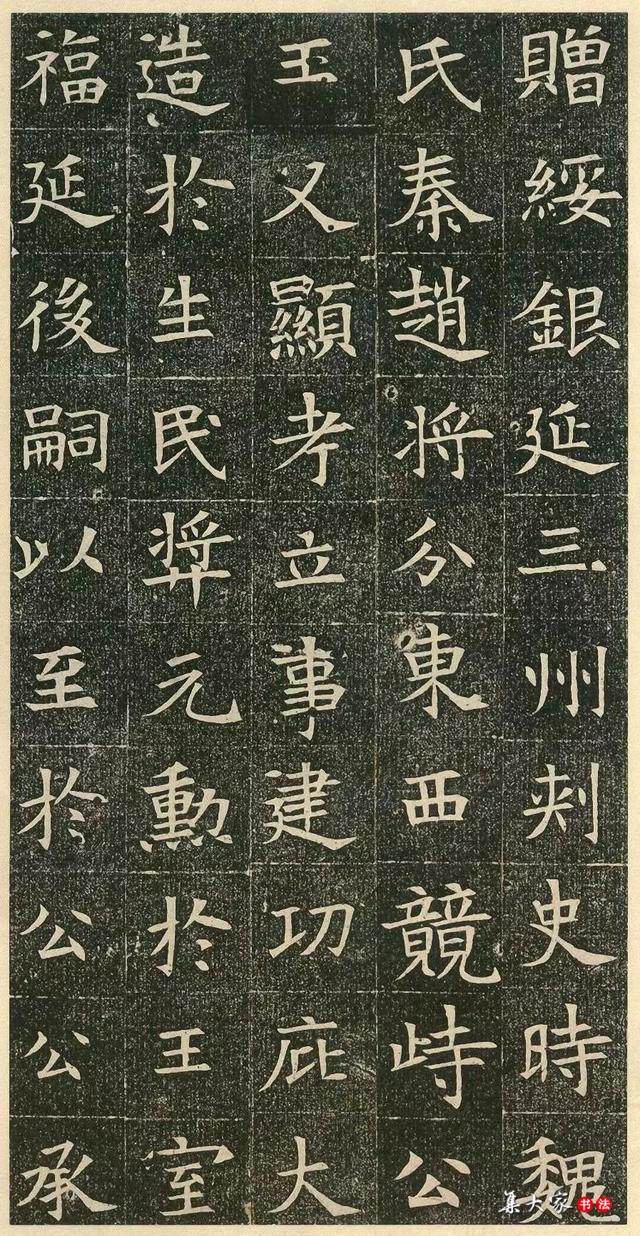 贈綏銀延三州刾史時魏
氏秦趙将分東西競峙公
王又顯考立事建功庇大
造於生民奨元勳於王室
福延後嗣以至於公公承
集大家书法